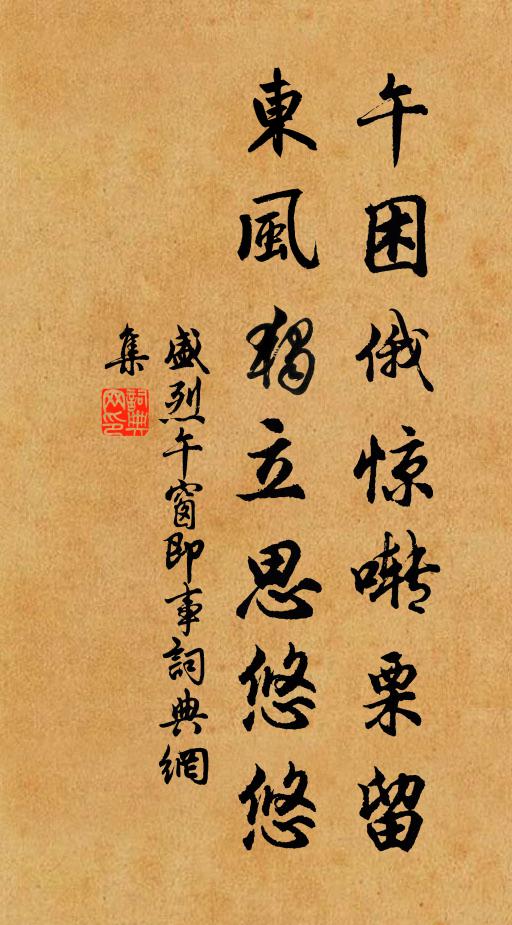 午困俄惊啭栗留
東風独立思悠悠
盛烈午窗即事詞典網
集
詞典網印